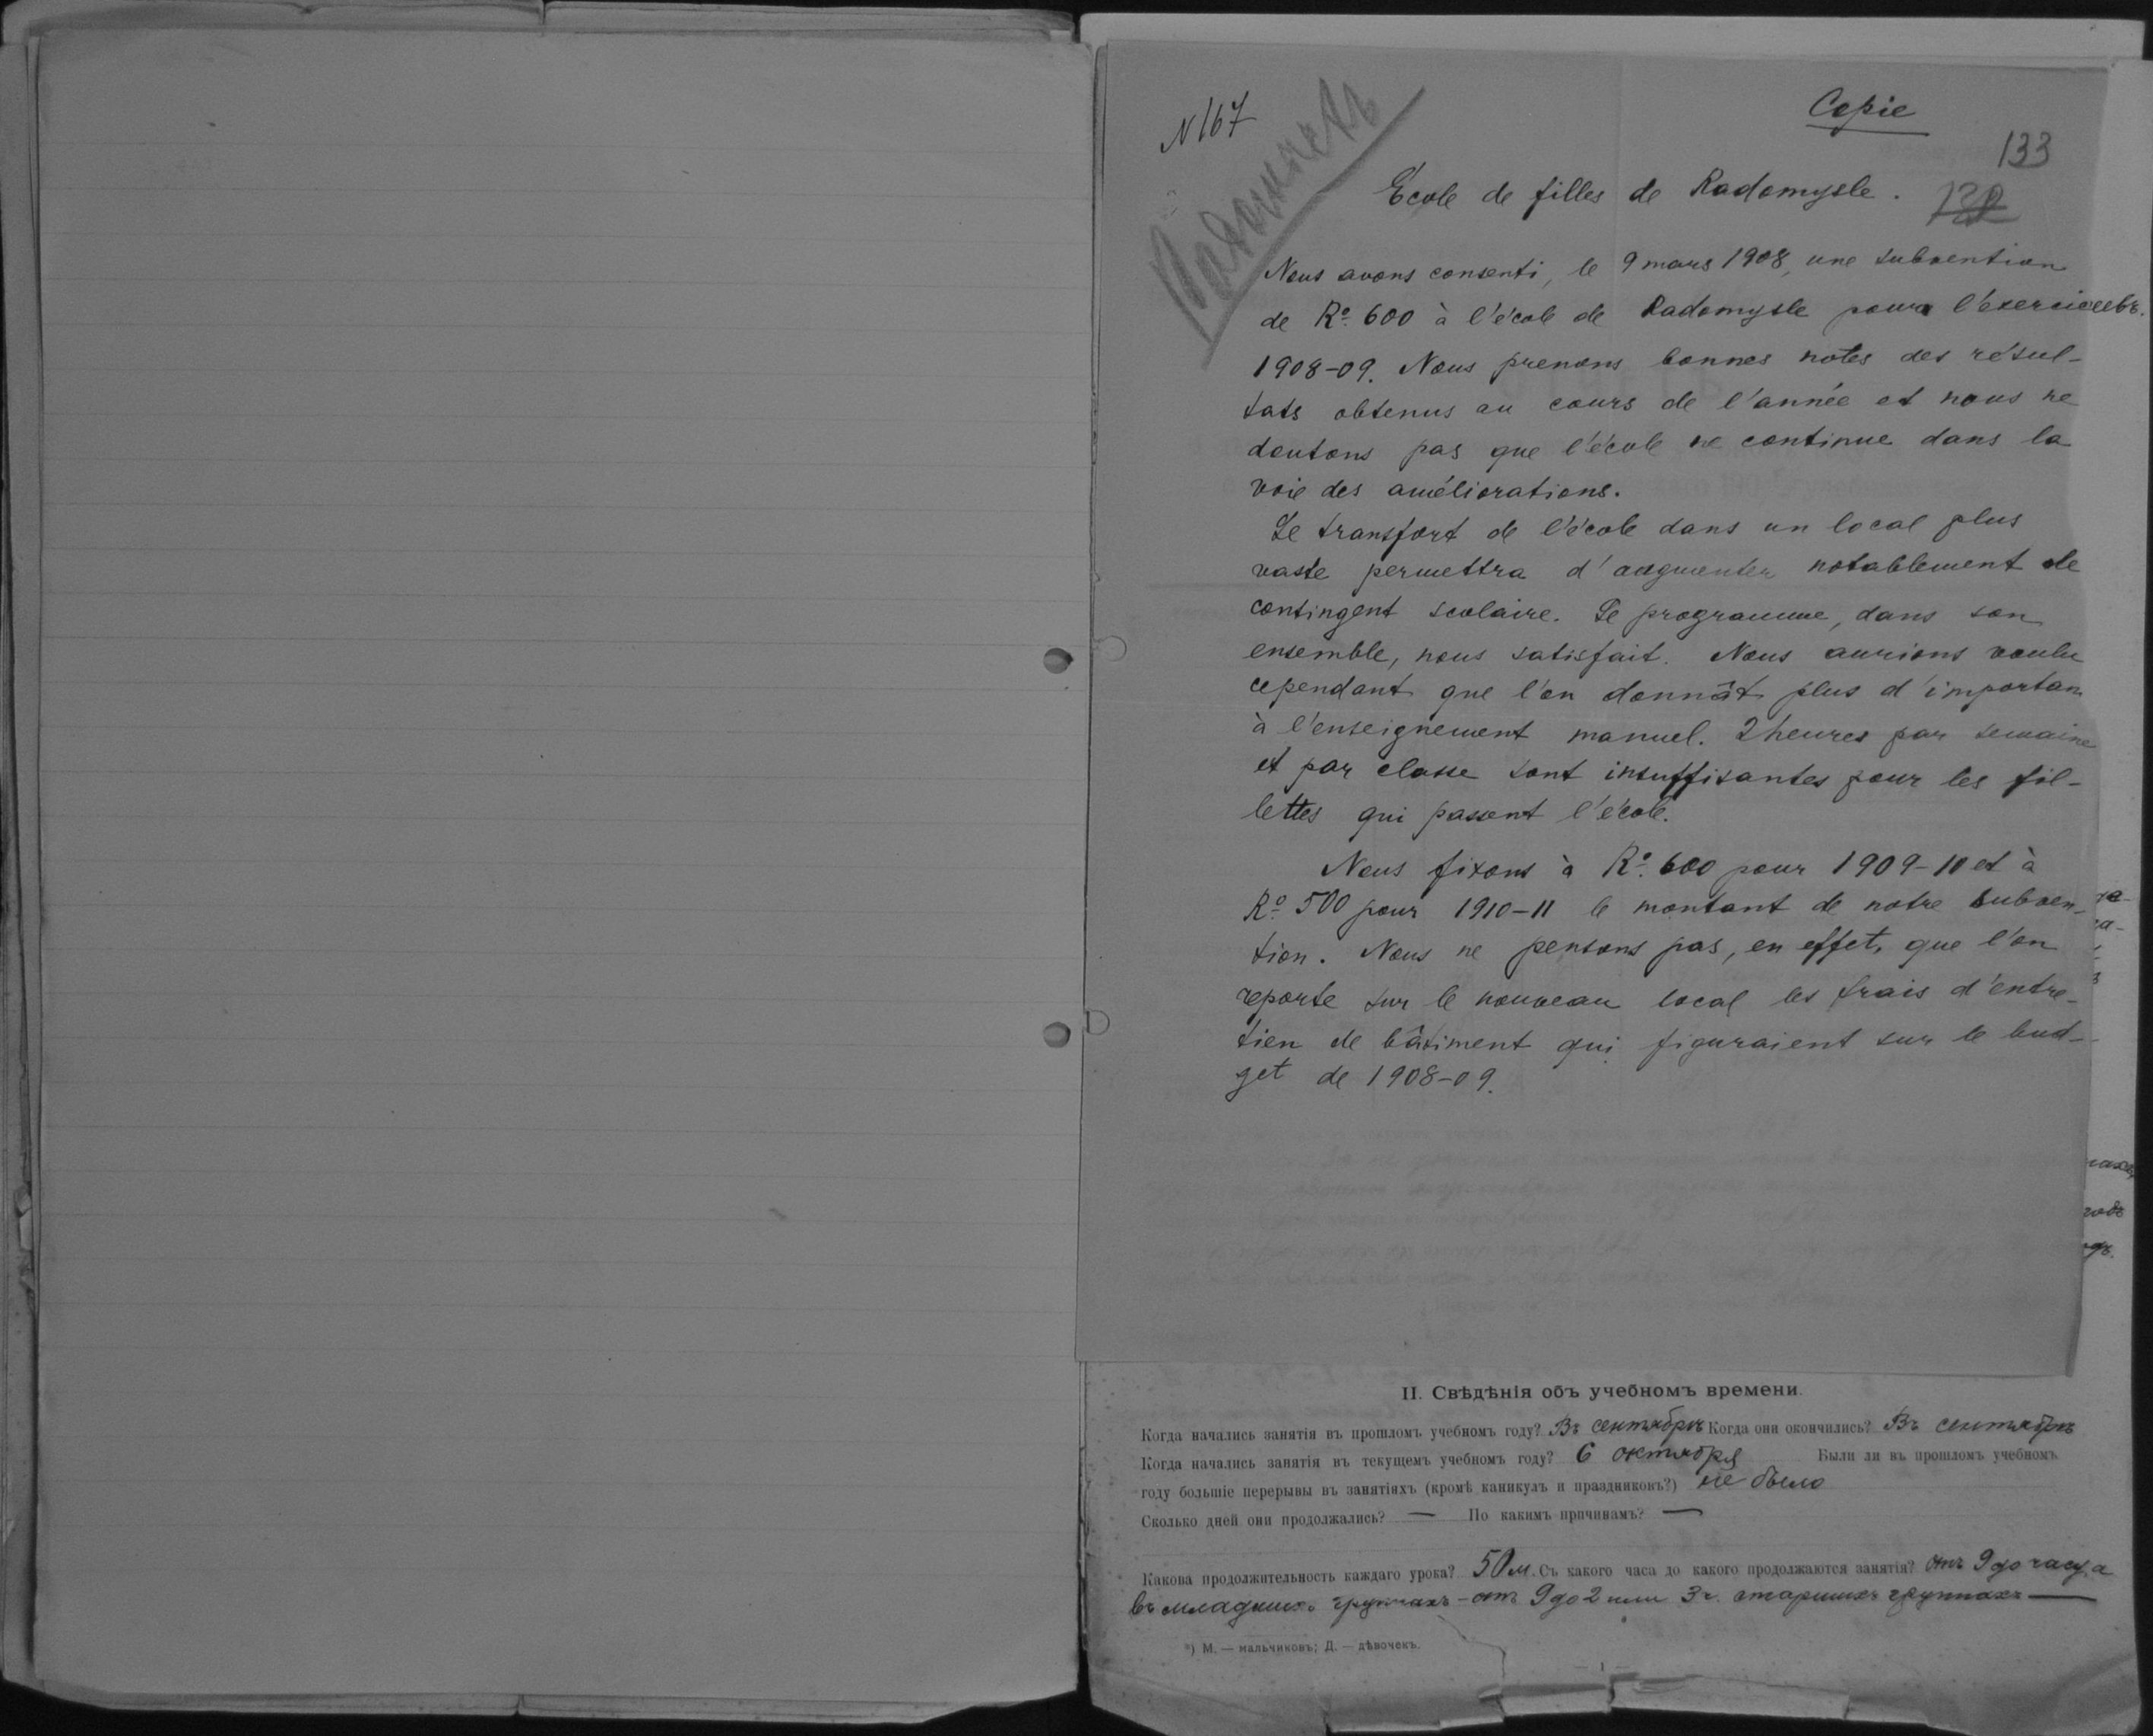 N 167
Copie
133
132
Радомысль
École de filles de Radomysle.
Nous avons consenti, le 9 mars 1908, une subvention
de Rº 600 à l'école de Radomysle pour l'exercice
1908-09. Nous prenons bonnes notes des résul-
tats obtenus au cours de l'année et nous ne
doutons pas que l'école ne continue dans la
voie des améliorations.
Le transfert de l'école dans un local plus
vaste permettra d'augmenter notablement le
contingent scolaire. Le programme, dans son
ensemble, nous satisfait. Nous aurions voulu
cependant que l'on donnât plus d'importan
à l'enseignement manuel. 2 heures par semaine
et par classe sont insuffisantes pour les fil-
lettes qui passent l'école.
Nous fixons à Rº 600 pour 1909-10 et à
Rº 500 pour 1910-11 le montant de notre subven-
tion. Nous ne pensons pas, en effet, que l'on
reporte sur le nouveau local les frais d'entre-
tien de bâtiment qui figuraient sur le bud-
get de 1908-09.
II. Свѣдѣнія объ учебномъ времени.
Когда начались занятія въ прошломъ учебномъ году? Въ сентябрѣ Когда они окончились? Въ сентябрѣ
Когда начались занятія въ текущемъ учебномъ году? 6 октября Были ли въ прошломъ учебномъ
году большіе перерывы въ занятіяхъ (кромѣ каникулъ и праздниковъ?) не было
Сколько дней они продолжались? — По какимъ причинамъ? —
Какова продолжительность каждаго урока? 50 м. Съ какого часа до какого продолжаются занятія? отъ 9 до часу, а
въ младшихъ группахъ - отъ 9 до 2 или 3 ч. старшихъ группахъ —
*) М. — мальчиковъ; Д. — дѣвочекъ.